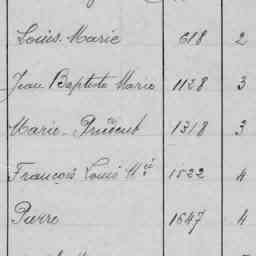 Louis Marie 618 2
Jean Baptiste Marie 1128 3
Marie Prudent 1318 3
François Louis Mie 1522 4
Pierre 1647 4